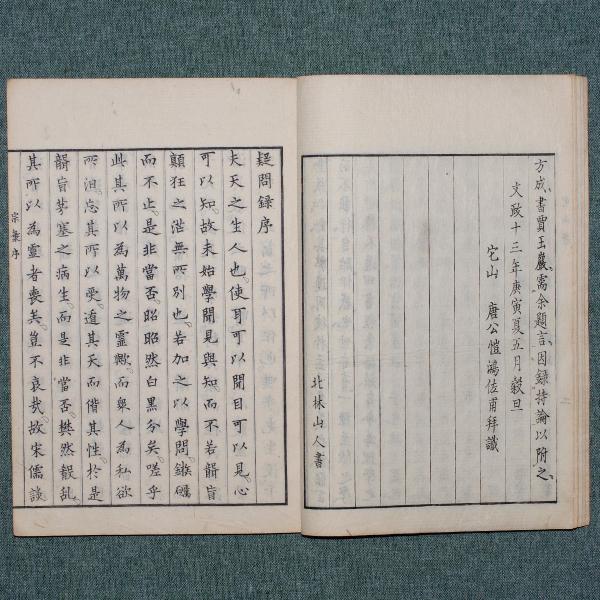 方成、書賈玉巖需余題言、因録持論以附之、
文政十三年庚寅夏五月穀旦
它山 唐公愷鴻佐甫拜識
北林山人書
疑問録序
夫天之生人也。使耳可以聞目可以見。心
可以知。故未始學聞見與知。而不若聾盲
顛狂之漞無所別也。若加之以學問。鏃礪
而不止。是非當否。昭昭然白黒分矣。嗟乎
此其所以為萬物之靈歟。而衆人為私欲
所汨忘其所以受。遁其天而偝其性。於是
聾盲茅塞之病生。而是非當否。樊然殽乱。
其所以為靈者喪矣。豈不哀哉。故宋儒談
宗彙序